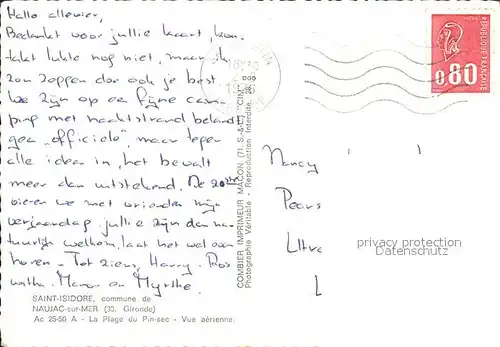 Hallo allevier,
Bedankt voor jullie kaart, kon-
takt lukte nog niet, maar ik
zou zeggen doe ook je best
We zijn op een fijne cam-
ping met naaktstrand beland
geen "officiele", maar tegen
alle ideeën in, het bevalt
meer dan uitstekend. De 20ste
vieren we met vrienden mijn
verjaardag. jullie zijn dan na-
tuurlijk welkom, laat het wel even
horen - Tot ziens, Harry - Ros
witha. Manon en Myrthe.
SAINT-ISIDORE, commune de
NAUJAC-sur-MER (33. Gironde)
Ac 25-56 A - La Plage du Pin-sec - Vue aérienne.
COMBIER IMPRIMEUR MACON (71. S.-&-L.) "CIM"
Photographie Véritable - Reproduction Interdite.
REPUBLIQUE FRANÇAISE
0,80
Nancy
Peers
privacy protection
Datenschutz